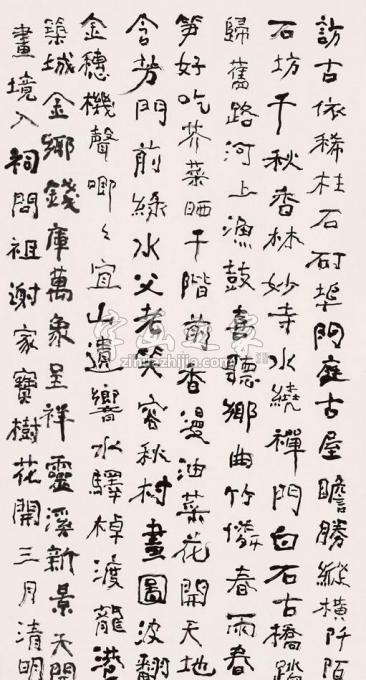 訪古依稀柱石埠門庭古屋瞻勝縱橫阡陌
石坊千秋香林妙寺水繞禪門白石古橋踏
歸舊路河上漁鼓喜聽鄉曲竹春雨春
笋好吃芥菜晒干階前香漫油菜花開天地
含芳門前綠水父老笑容秋村畫圖波翻
金穗機聲唧々宜山遺響水驛棹渡龍港
築城金鄉錢庫萬象呈祥靈溪新景天開
畫境入祠問祖謝家寶樹花開三月清明
字画之家
zihuazhijia.com